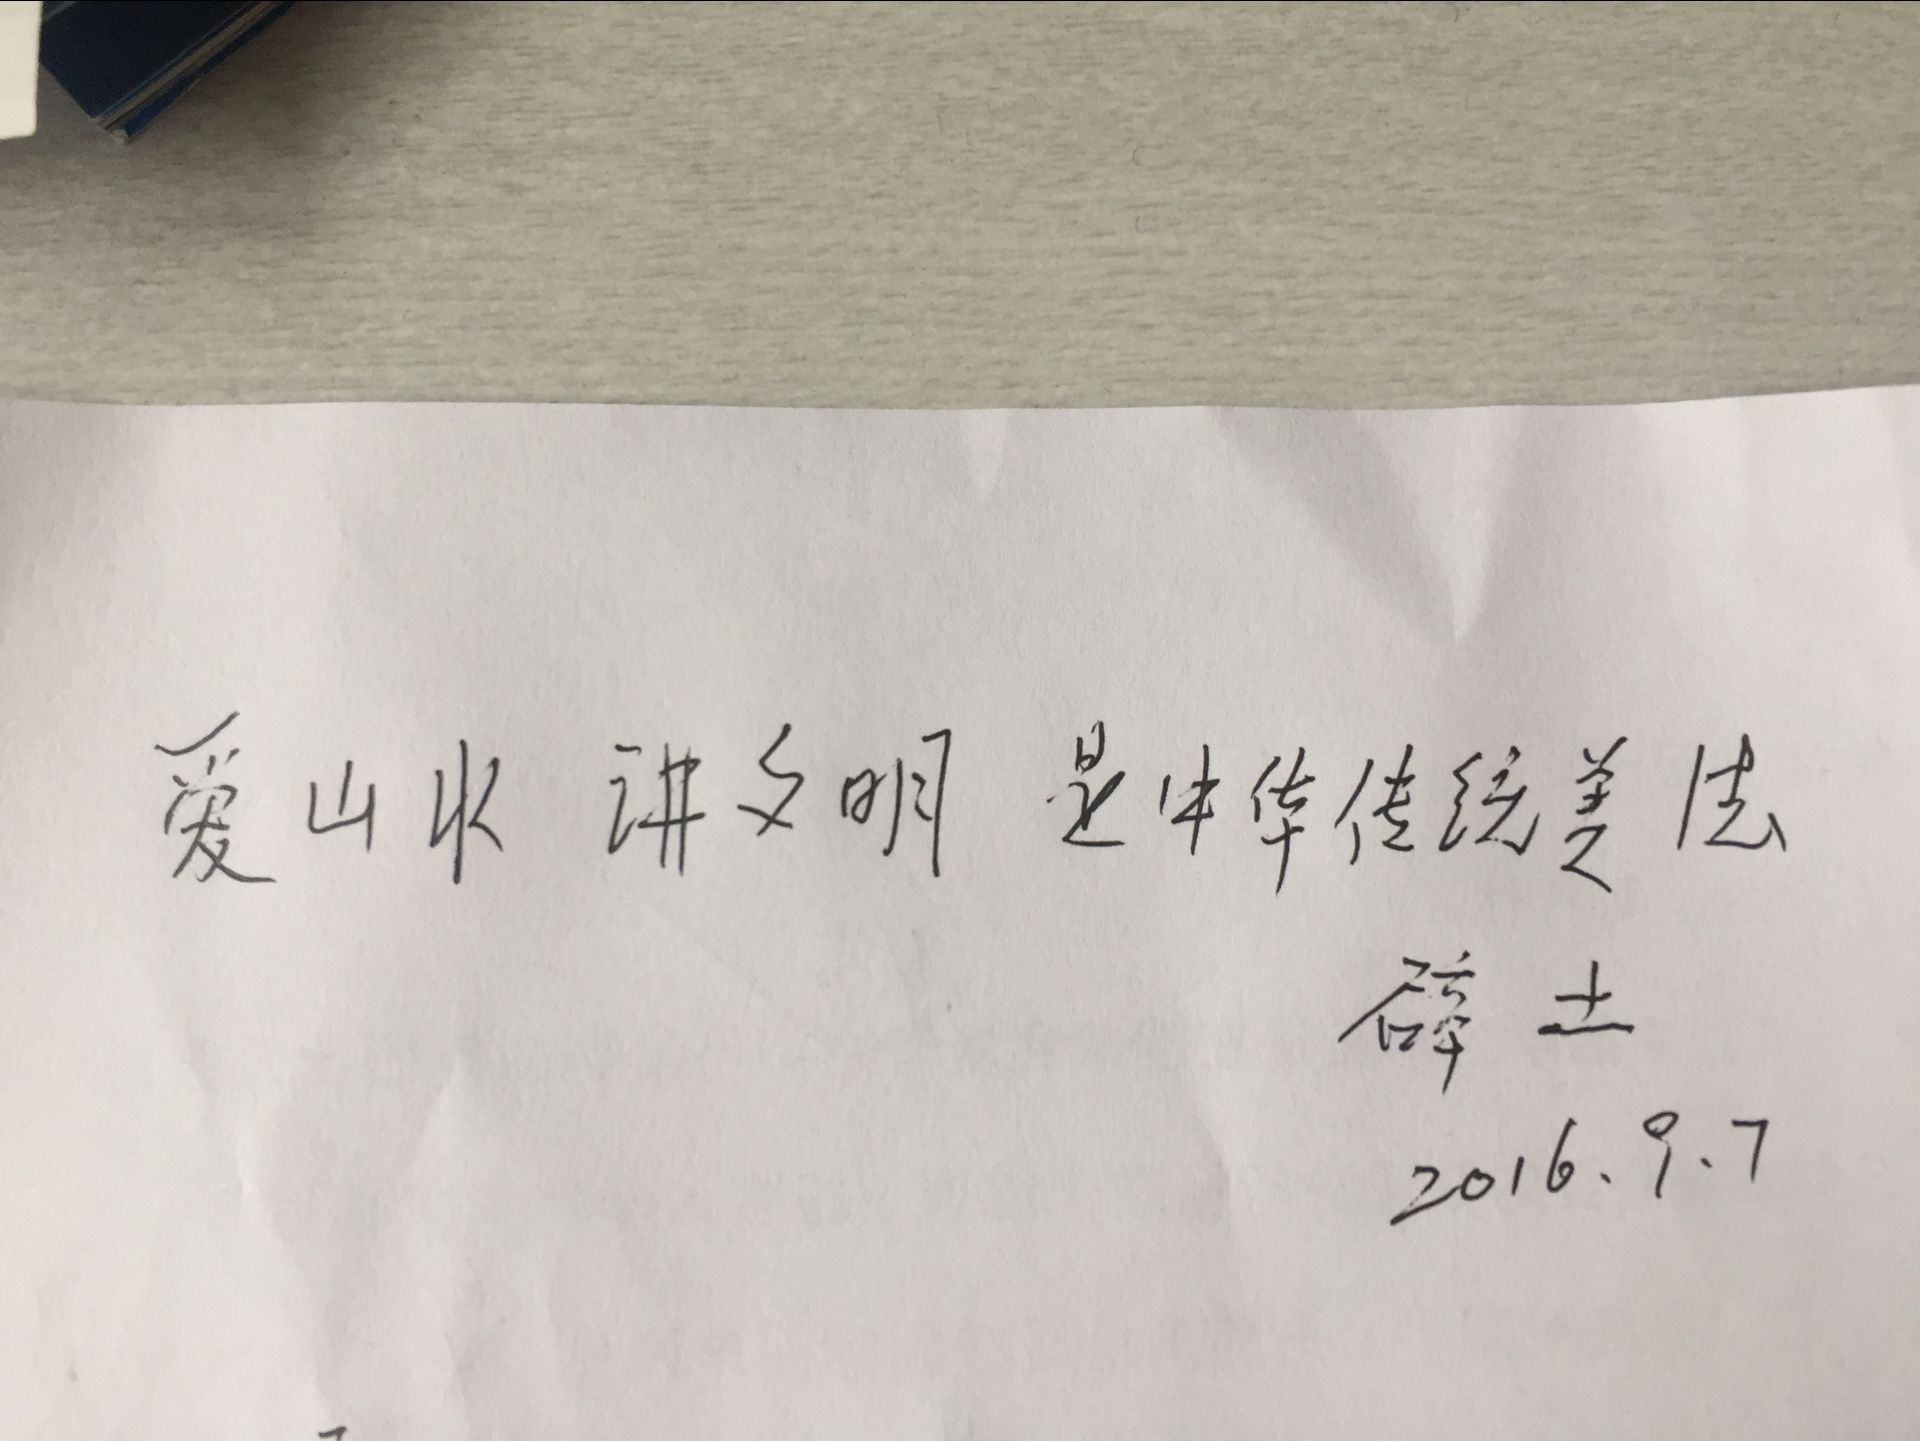 爱山水 讲文明 是中华传统美法
辟土
2016.9.7